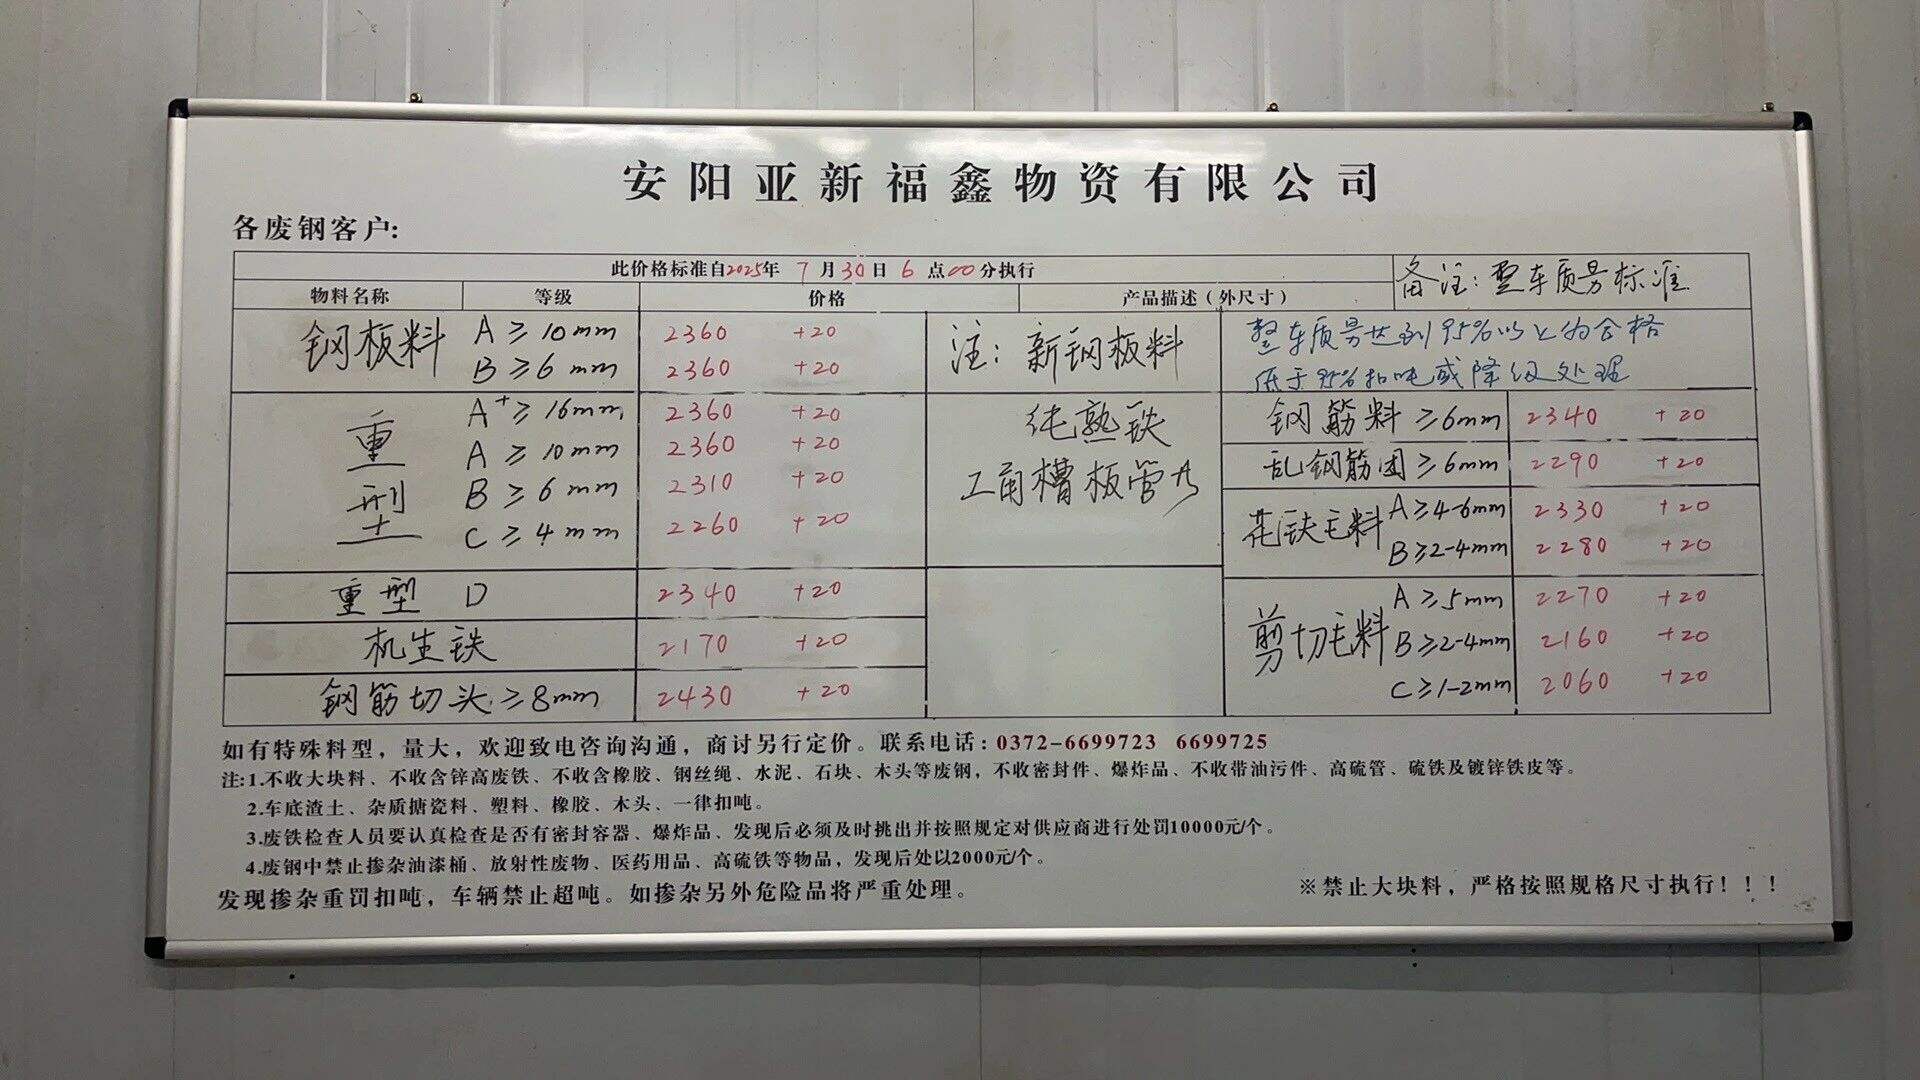 安阳亚新福鑫物资有限公司
各废钢客户:
此价格标准自2025年 7 月 30 日 6 点 00 分执行
备注: 整车质量标准
物料名称 等级 价格 产品描述（外尺寸）
钢板料 A ≥ 10mm 2360 +20
B ≥ 6mm 2360 +20
注: 新钢板料
整车质量达到95%以上为合格
低于95%扣吨或降级处理
重型 A+ ≥ 16mm 2360 +20
A ≥ 10mm 2360 +20
B ≥ 6mm 2310 +20
C ≥ 4mm 2260 +20
纯熟铁
工角槽板管
钢筋料 ≥6mm 2340 +20
乱钢筋团 ≥6mm 2290 +20
花铁毛料 A≥4-6mm 2330 +20
B≥2-4mm 2280 +20
重型 D 2340 +20
机生铁 2170 +20
钢筋切头 ≥8mm 2430 +20
剪切毛料 A ≥5mm 2270 +20
B≥2-4mm 2160 +20
C≥1-2mm 2060 +20
如有特殊料型，量大，欢迎致电咨询沟通，商讨另行定价。联系电话: 0372-6699723 6699725
注:1.不收大块料、不收含锌高废铁、不收含橡胶、钢丝绳、水泥、石块、木头等废钢，不收密封件、爆炸品、不收带油污件、高硫管、硫铁及镀锌铁皮等。
2.车底渣土、杂质搪瓷料、塑料、橡胶、木头、一律扣吨。
3.废铁检查人员要认真检查是否有密封容器、爆炸品、发现后必须及时挑出并按照规定对供应商进行处罚10000元/个。
4.废钢中禁止掺杂油漆桶、放射性废物、医药用品、高硫铁等物品，发现后处以2000元/个。
发现掺杂重罚扣吨，车辆禁止超吨。如掺杂另外危险品将严重处理。
※禁止大块料，严格按照规格尺寸执行！！！